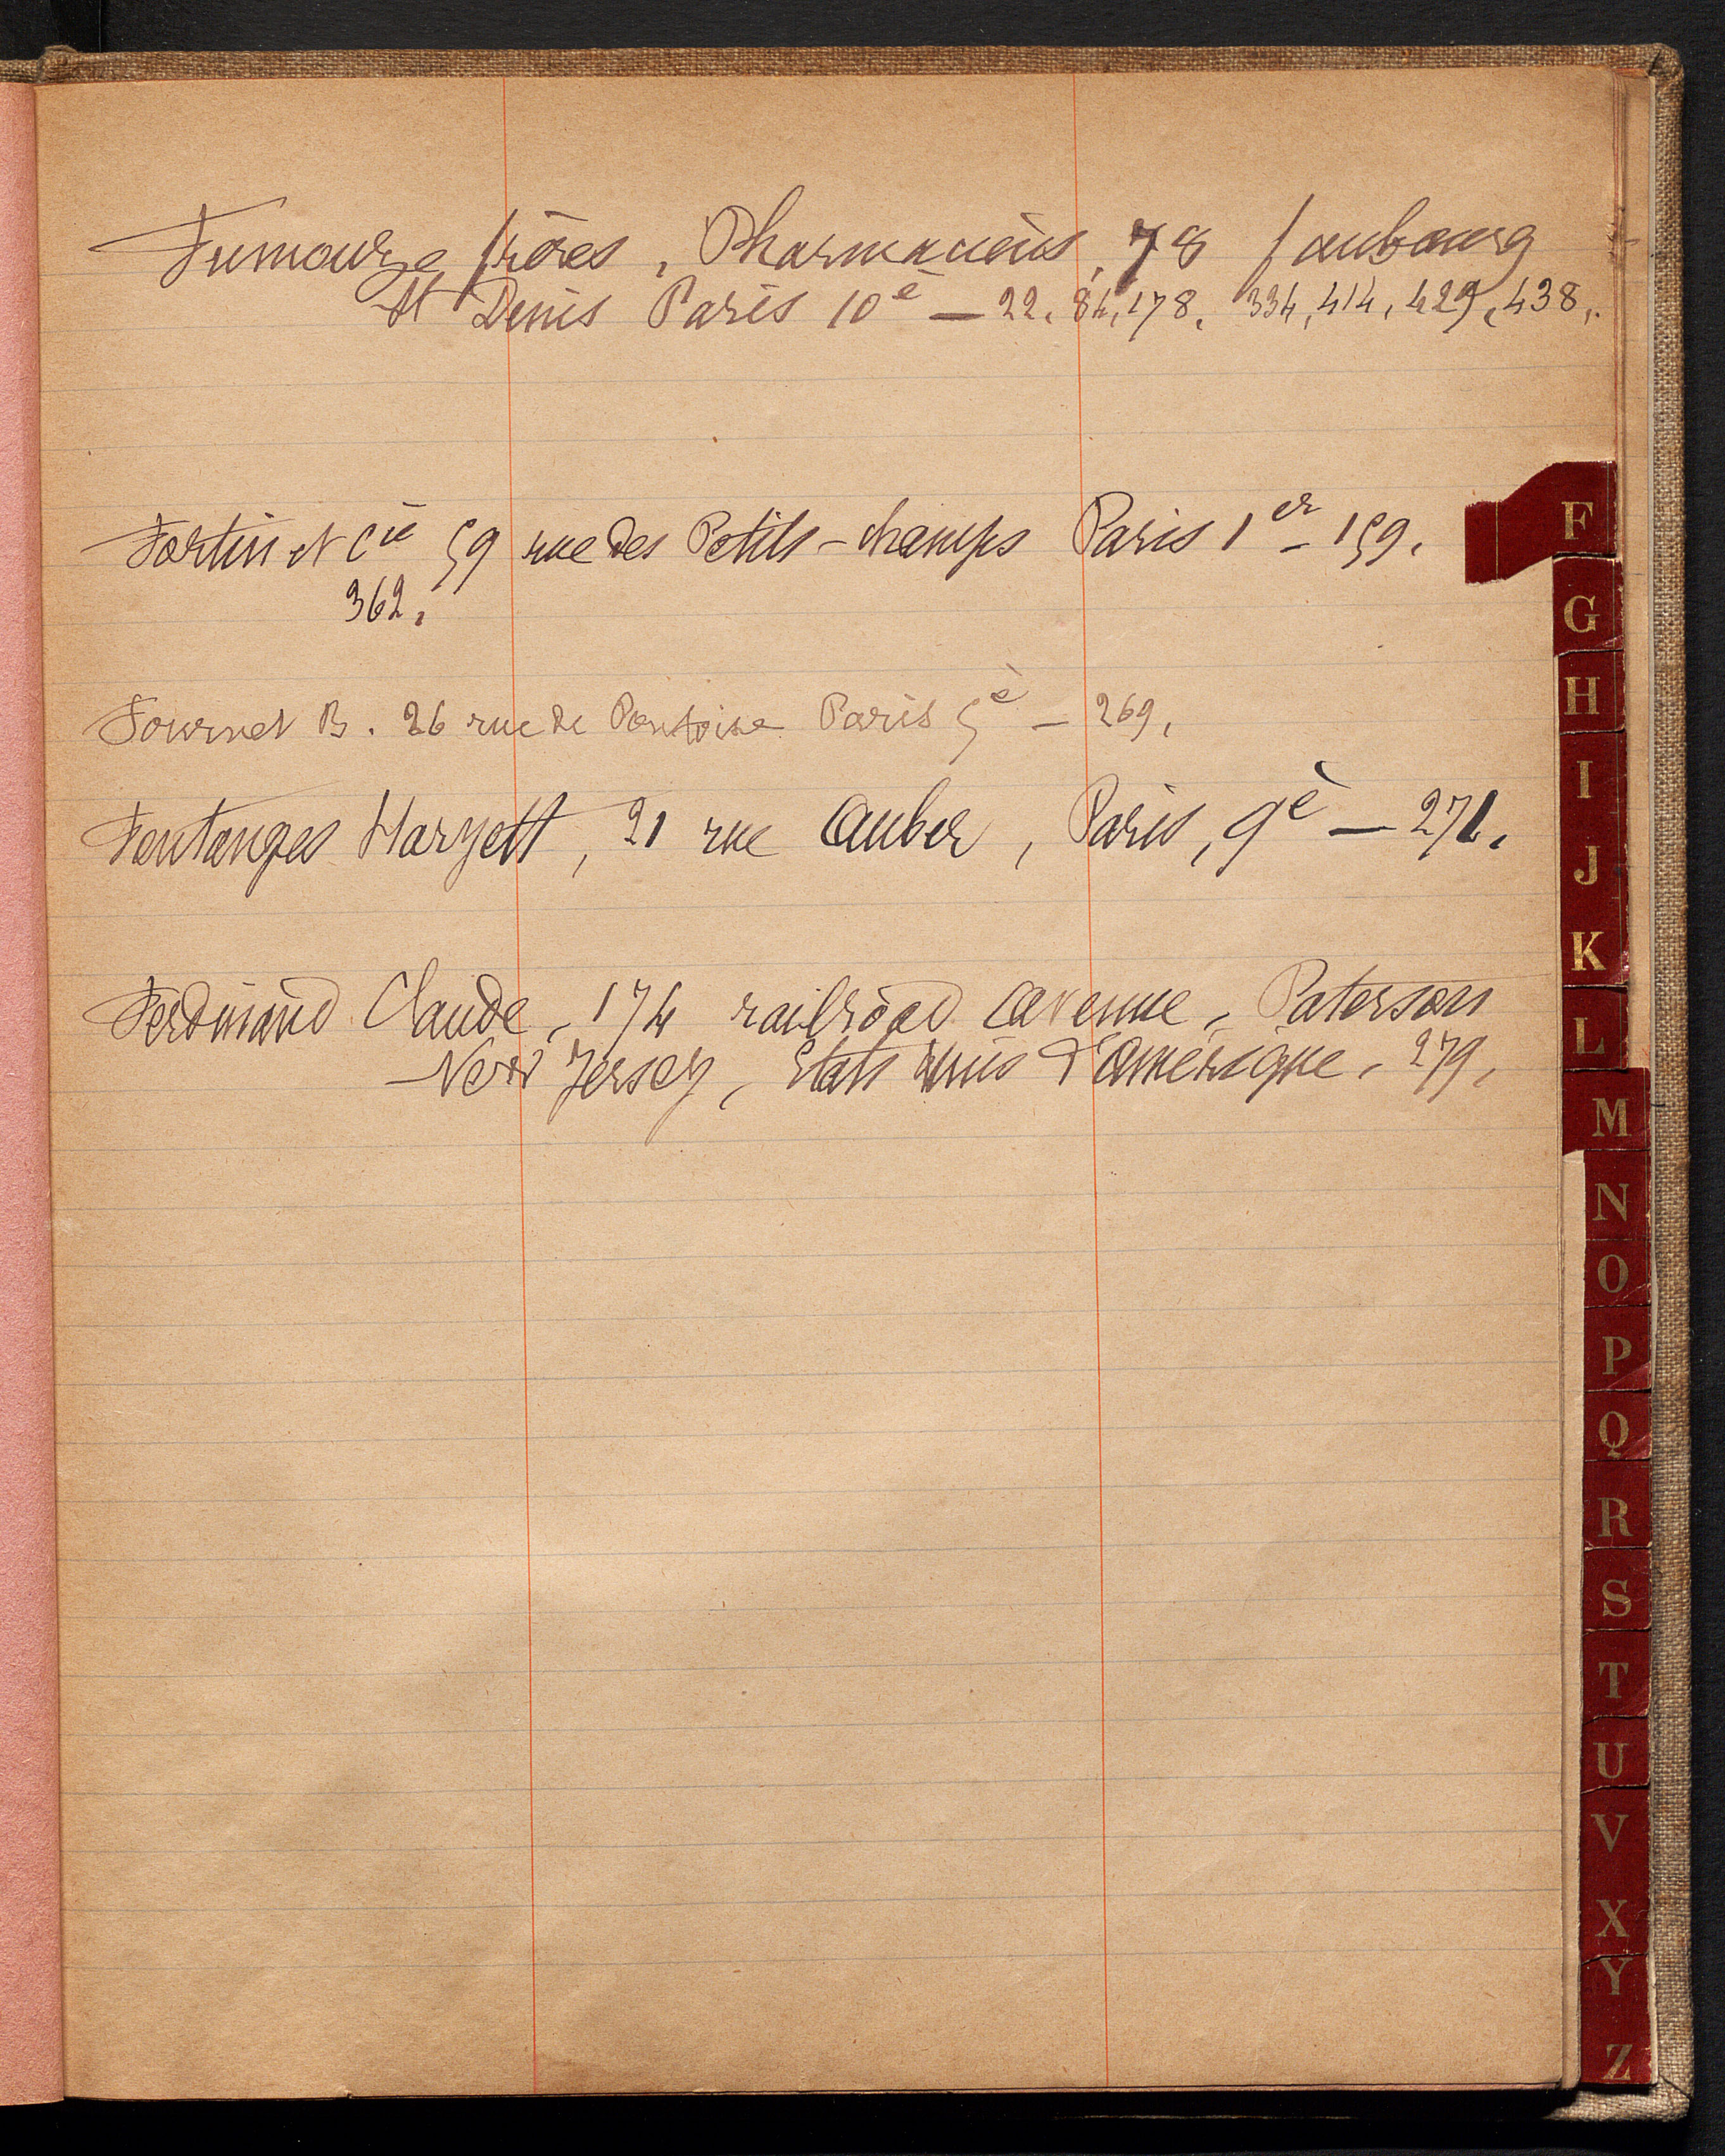 Fumouze frères, Pharmaciens, 78 faubourg
St Denis Paris 10è — 22, 84, 178, 334, 414, 429, 438,
Fortin et Cie 59 rue des Petits-champs Paris 1er - 159,
362,
Fournet B. 26 rue de Pontoise Paris 5è — 269,
Fontanges Haryett, 21 rue Auber, Paris, 9è — 271,
Ferdinand Claude, 174 railroad avenue, Paterson
New Jersey, Etats Unis d'Amérique, 279,
F
G
H
I
J
K
L
M
N
O
P
Q
R
S
T
U
V
X
Y
Z